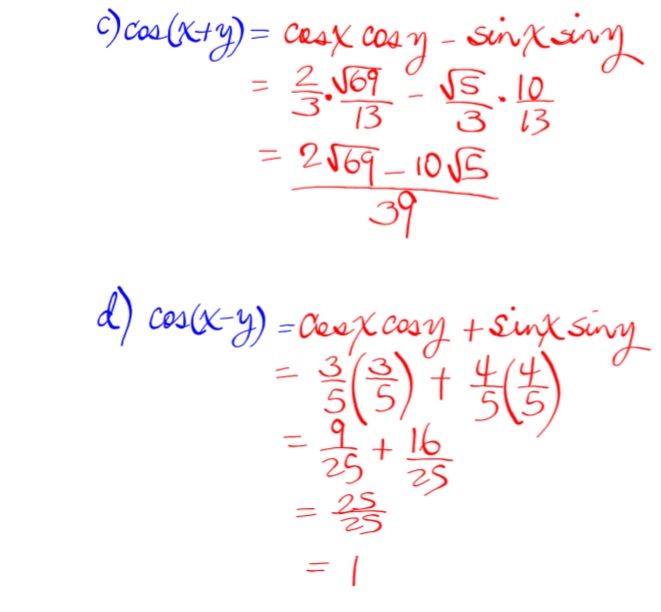 c) cos(x+y) = cosx cosy - sinx siny
= 2/3 · √69/13 - √5/3 · 10/13
= (2√69 - 10√5)/39
d) cos(x-y) = cosx cosy + sinx siny
= 3/5(3/5) + 4/5(4/5)
= 9/25 + 16/25
= 25/25
= 1